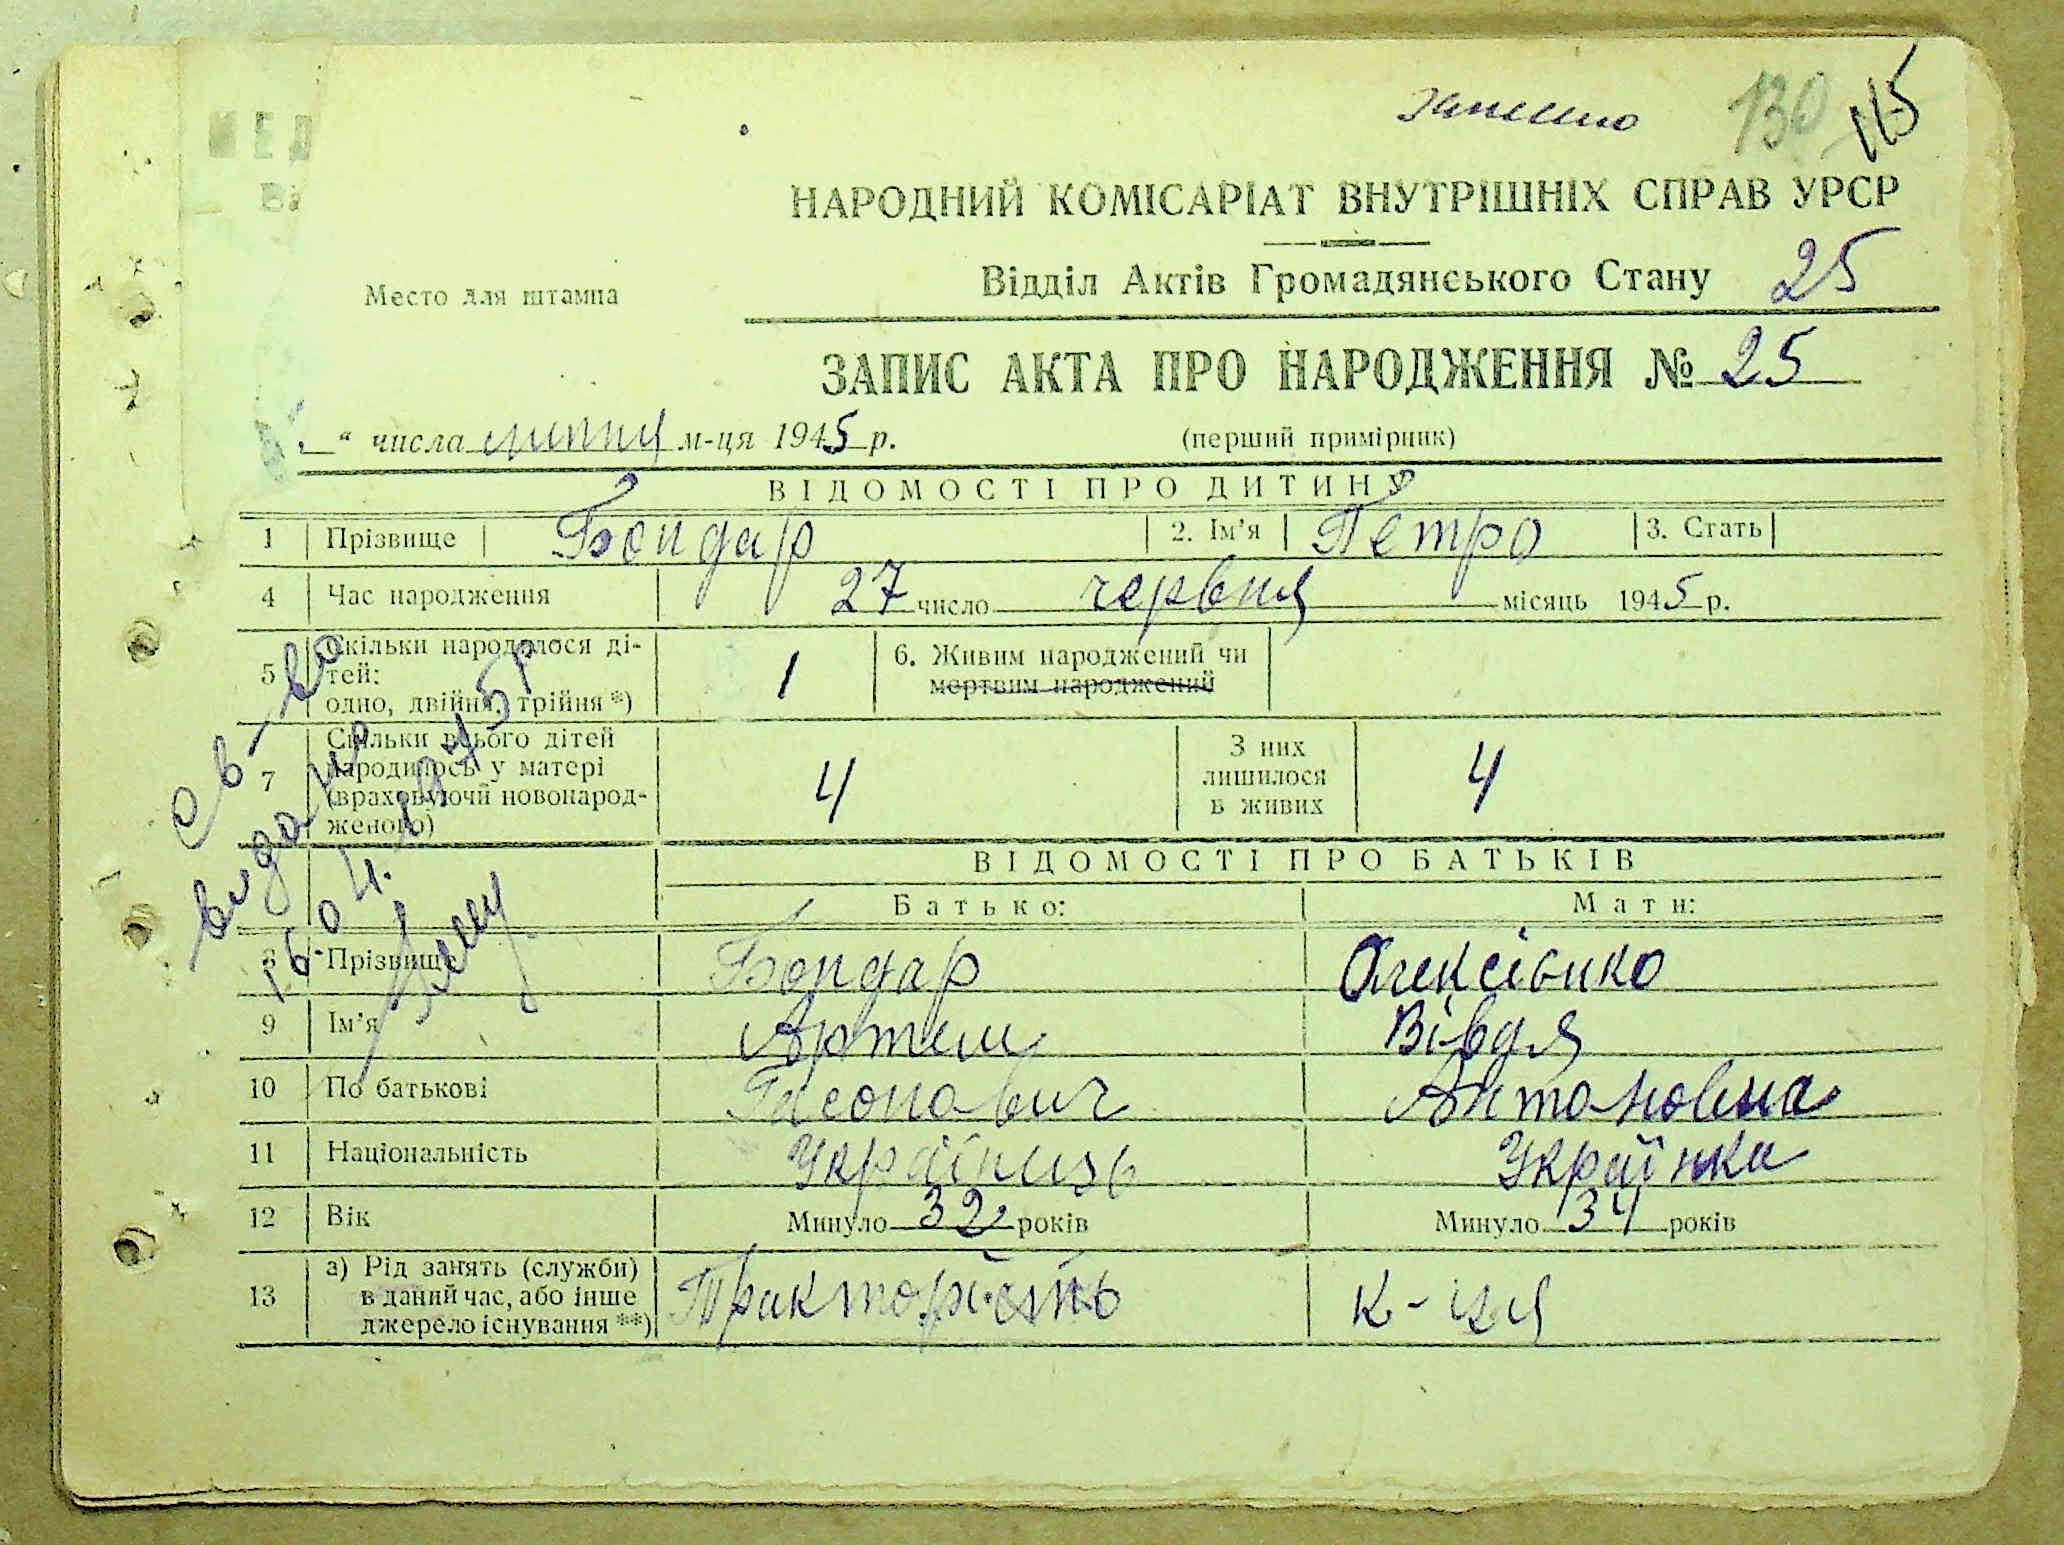 130 115
НАРОДНИЙ КОМІСАРІАТ ВНУТРІШНІХ СПРАВ УРСР
Место для штампа
Відділ Актів Громадянського Стану 25
ЗАПИС АКТА ПРО НАРОДЖЕННЯ № 25
“ числа липня м-ця 1945 р. (перший примірник)
ВІДОМОСТІ ПРО ДИТИНУ
1 Прізвище Бондар 2. Ім’я Петро 3. Стать
4 Час народження 27 число червня місяць 1945 р.
5 Скільки народилося дітей: одно, двійня, трійня *) 1 6. Живим народжений чи мертвим народжений
7 Скільки всього дітей народилось у матері (враховуючи новонародженого) 4 З них лишилося в живих 4
ВІДОМОСТІ ПРО БАТЬКІВ
Батько: Мати:
8 Прізвище Бондар Олексієнко
9 Ім’я Артем Вівдя
10 По батькові Антоновна
11 Національність Українець Українка
12 Вік Минуло 32 років Минуло 34 років
13 а) Рід занять (служби) в даний час, або інше джерело існування **) Тракторість к-ця
св-во
видано
16.04.1975р